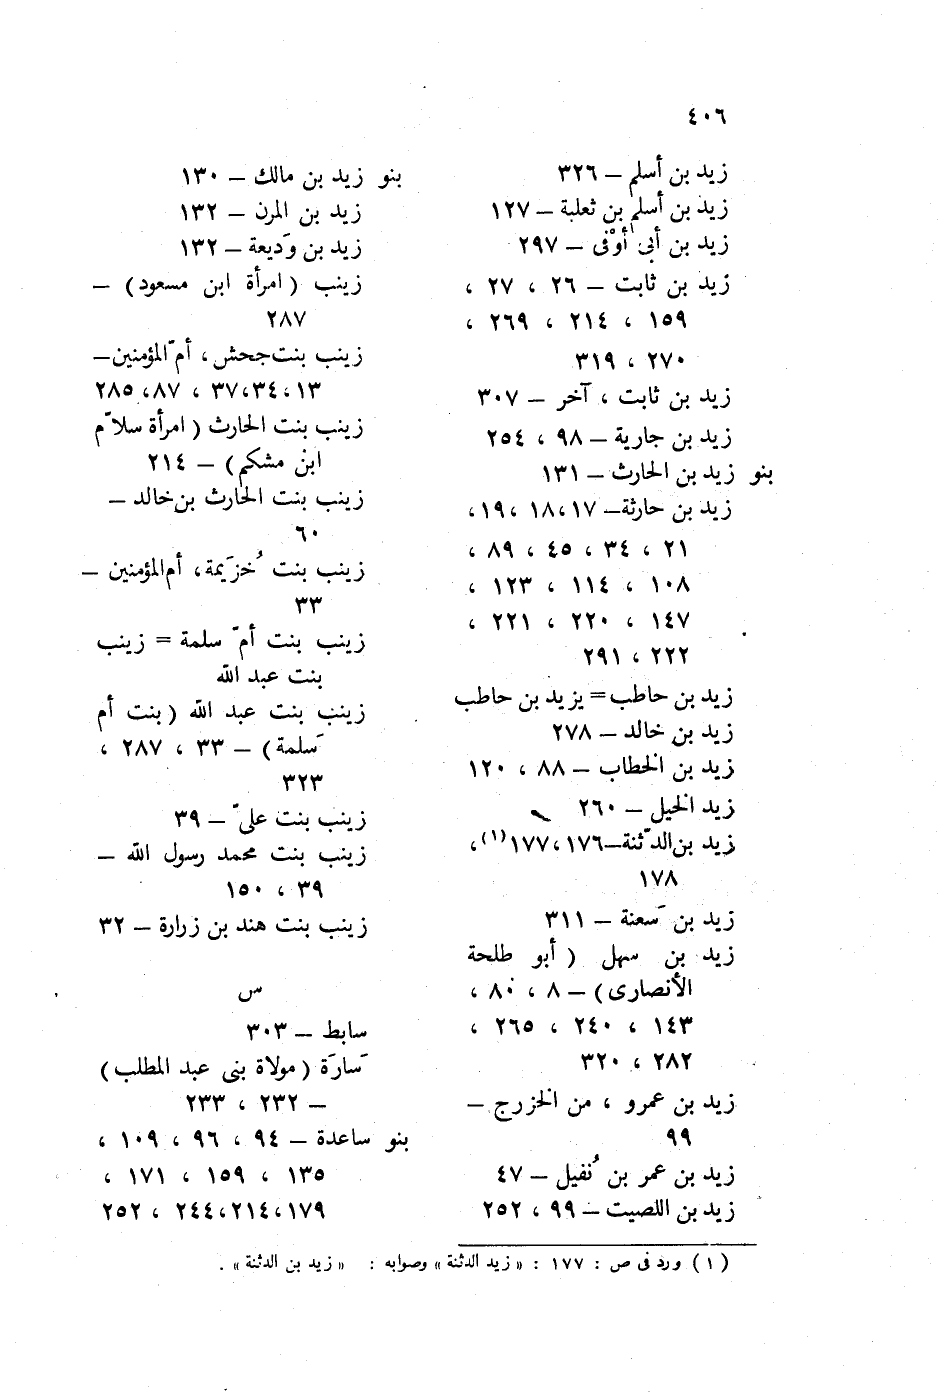 ٤٠٦
زيد بن أسلم – ٣٢٦
زيد بن أسلم بن ثعلبة – ١٢٧
زيد بن أبى أوْفى – ٢٩٧
زيد بن ثابت – ٢٦ ، ٢٧ ،
١٥٩ ، ٢١٤ ، ٢٦٩ ،
٢٧٠ ، ٣١٩
زيد بن ثابت ، آخر – ٣٠٧
زيد بن جارية – ٩٨ ، ٢٥٤
بنو زيد بن الحارث – ١٣١
زيد بن حارثة – ١٧ ، ١٨ ، ١٩ ،
٢١ ، ٣٤ ، ٤٥ ، ٨٩ ،
١٠٨ ، ١١٤ ، ١٢٣ ،
١٤٧ ، ٢٢٠ ، ٢٢١ ،
٢٢٢ ، ٢٩١
زيد بن حاطب = يزيد بن حاطب
زيد بن خالد – ٢٧٨
زيد بن الخطاب – ٨٨ ، ١٢٠
زيد الخيل – ٢٦٠
زيد بن الدّثنة – ١٧٦ ، ١٧٧(١) ،
١٧٨
زيد بن سَعنة – ٣١١
زيد بن سهل ( أبو طلحة
الأنصارى ) – ٨ ، ٨٠ ،
١٤٣ ، ٢٤٠ ، ٢٦٥ ،
٢٨٢ ، ٣٢٠
زيد بن عمرو ، من الخزرج –
٩٩
زيد بن عمر بن نُفيل – ٤٧
زيد بن اللصيت – ٩٩ ، ٢٥٢
بنو زيد بن مالك – ١٣٠
زيد بن المرن – ١٣٢
زيد بن وَديعة – ١٣٢
زينب ( امرأة ابن مسعود ) –
٢٨٧
زينب بنت جحش ، أم المؤمنين –
١٣ ، ٣٤ ، ٣٧ ، ٨٧ ، ٢٨٥
زينب بنت الحارث ( امرأة سلاّم
ابن مشكم ) – ٢١٤
زينب بنت الحارث بن خالد –
٦٠
زينب بنت خُزَيمة ، أم المؤمنين –
٣٣
زينب بنت أمّ سلمة = زينب
بنت عبد الله
زينب بنت عبد الله ( بنت أم
سَلمة ) – ٣٣ ، ٢٨٧ ،
٣٢٣
زينب بنت علىّ – ٣٩
زينب بنت محمد رسول الله –
٣٩ ، ١٥٠
زينب بنت هند بن زرارة – ٣٢
س
سابط – ٣٠٣
سَارَة ( مولاة بنى عبد المطلب )
– ٢٣٢ ، ٢٣٣
بنو ساعدة – ٩٤ ، ٩٦ ، ١٠٩ ،
١٣٥ ، ١٥٩ ، ١٧١ ،
١٧٩ ، ٢١٤ ، ٢٤٤ ، ٢٥٢
( ١ ) ورد فى ص : ١٧٧ : « زيد الدثنة » وصوابه : « زيد بن الدثنة » .